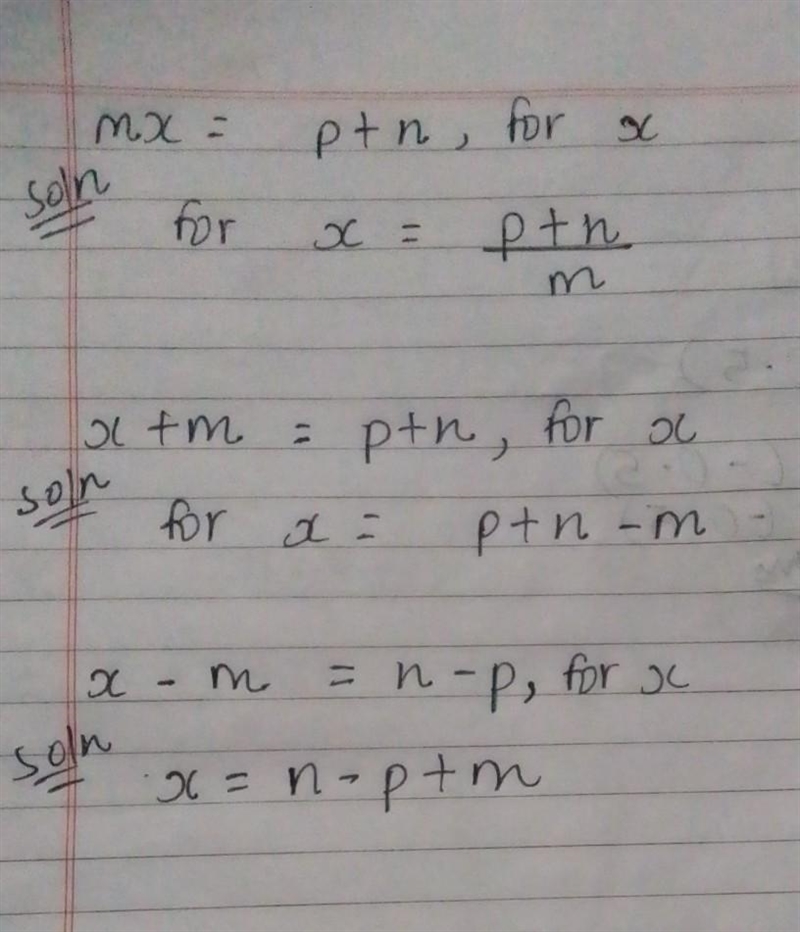 mx = p+n, for x
soln
for x = p+n
m
x+m = p+n, for x
soln
for x = p+n-m
x - m = n-p, for x
soln
x = n-p+m